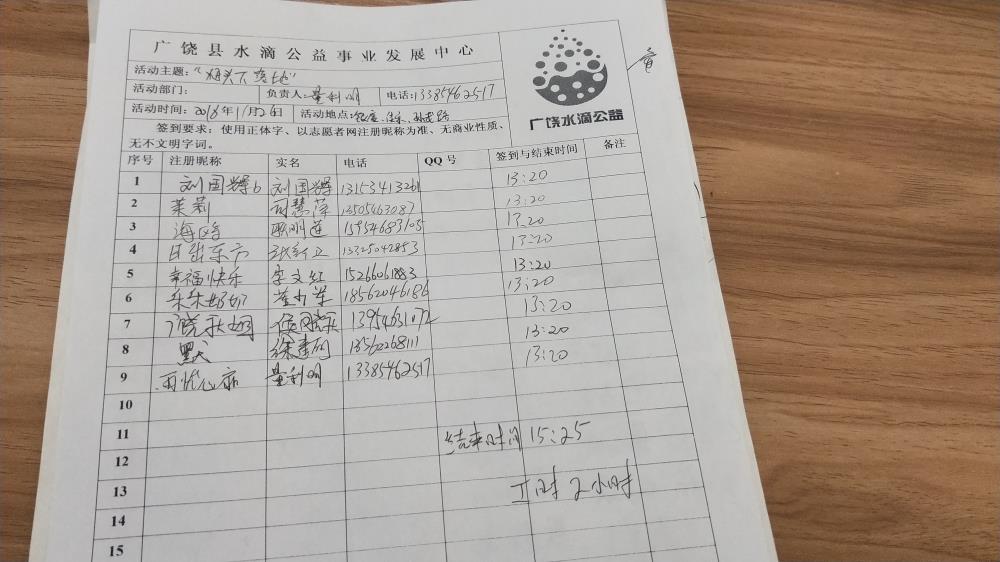 广饶县水滴公益事业发展中心
活动主题：
活动部门： 负责人： 利明 电话：13385462517
活动时间：2018年11月26日 活动地点：
签到要求：使用正体字、以志愿者网注册昵称为准、无商业性质、
无不文明字词。
广饶水滴公益
序号 注册昵称 实名 电话 QQ号 签到与结束时间 备注
1 刘国辉6 刘国辉 13153413261 13:20
2 茉莉 13505463087 13:20
3 海鸥 明莲 15954683105 13:20
4 日出东方 13325042853 13:20
5 幸福快乐 李文红 15266061883 13:20
6 乐乐奶奶 18562046186 13:20
7 广饶秋烟 13954631072 13:20
8 默 徐建 13562268111 13:20
9 利明 13385462517 13:20
10
11 结束时间 15:25
12
13 工时 2小时
14
15